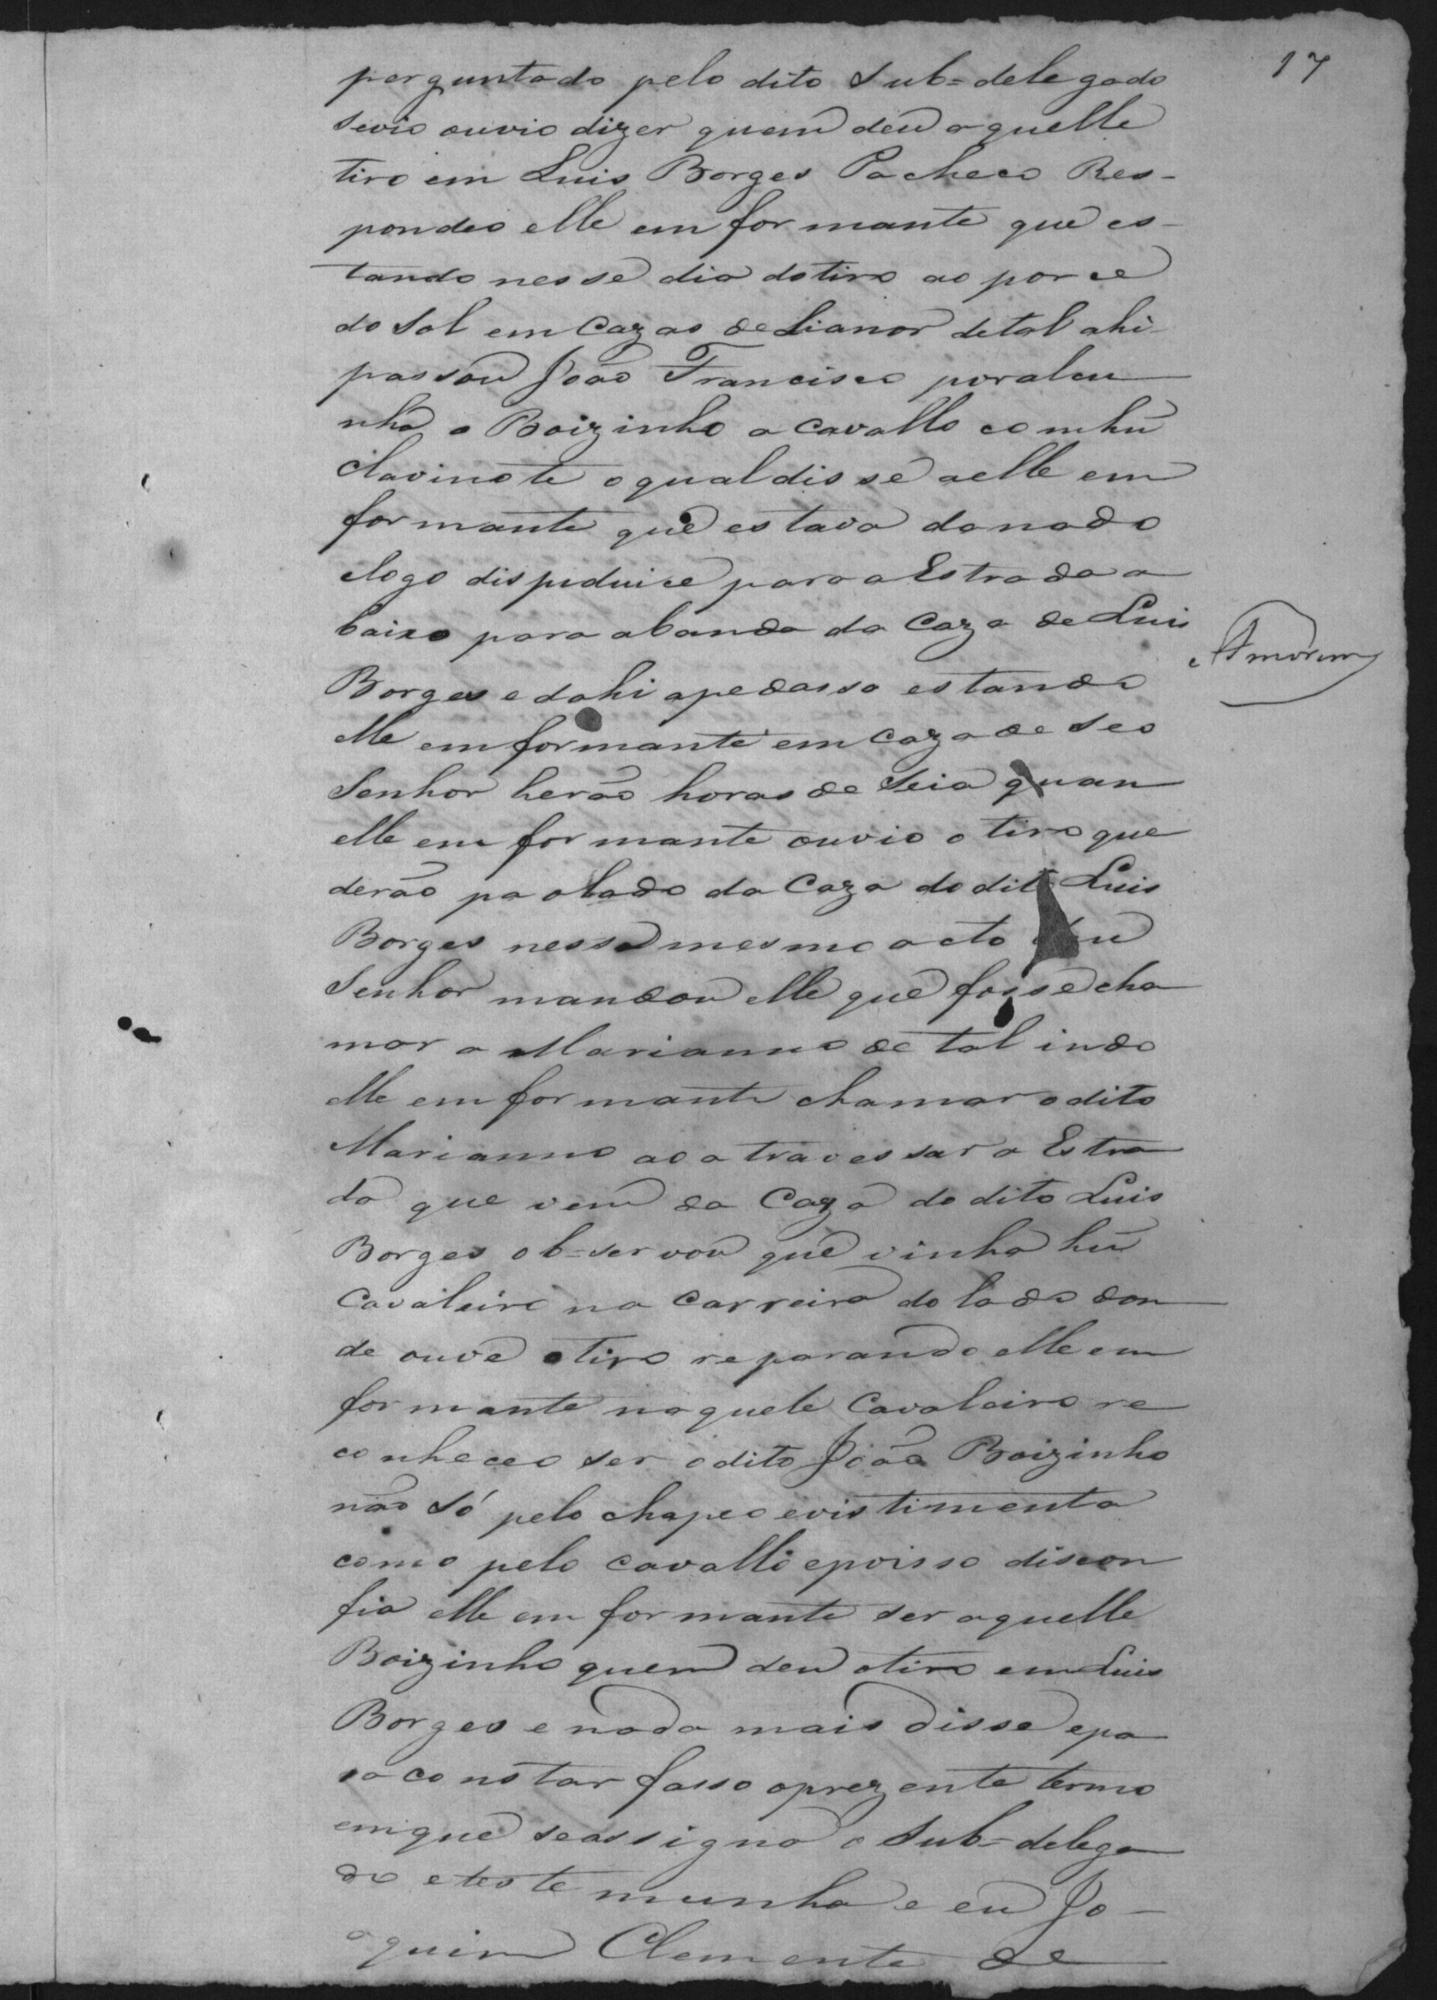 17
perguntado pelo dito Sub=delegado
sevio ouvio dizer quem deu aquelle
tiro em Luis Borges Pacheco Res-
pondeo elle emformante que es-
tando nesse dia dotiro ao porce
do Sol em Cazas de Lianor detal ahi
passou João Francisco por alcu
nha o Boizinho a cavallo com hũ
clavinote oqual disse aelle em
formante que estava danado
elogo dispiduice para a Estrada a
baixo para abanda da Caza de Luis
Amorim
Borges e dahi apedasso estando
elle emformante em caza de Seo
Senhor herão horas de Seia quan
elle emformante ouvio o tiro que
derão pa olado da Caza do dito Luis
Borges nesse mesmo acto seu
Senhor mandou elle que fosse cha
mar a Marianno de tal indo
elle emformante chamar odito
Marianno ao atravessar a Estra
da que vem da Caza do dito Luis
Borges ob=servou que vinha hũ
Cavaleiro na Carreira do lado don
de ouve otiro reparando elle em
formante naquele Cavaleiro re
conheceo ser odito João Boizinho
não Só pelo chapeo evistimenta
como pelo cavallo epoisso discon
fia elle emformante ser aquelle
Boizinho quem deu otiro em Luis
Borges e nada mais disse epa
ra constar fasso oprezente termo
emque seassigna o Sub=delega
do etestemunha e eu Jo-
aquim Clemente de